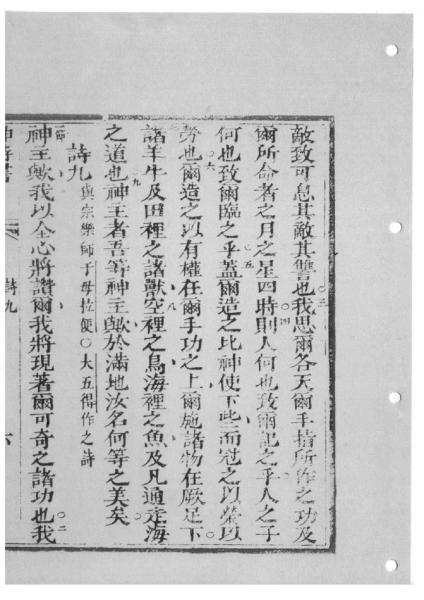 敵致可息其敵其讐也我思爾各天爾手指所作之功及
爾所命者之月之星四時則人何也致爾記之乎人之子
何也致爾臨之乎蓋爾造之比神使下些而冠之以榮以
勞也爾造之以有權在爾手功之上爾施諸物在厥足下
諸羊牛及田裡之諸獸空裡之鳥海裡之魚及凡通走海
之道也神主者吾等神主歟於滿地汝名何等之美矣
詩九與宗樂師于母拉便○大五得作之詩
神主歟我以全心將讚爾我將現著爾可奇之諸功也我
詩九
六